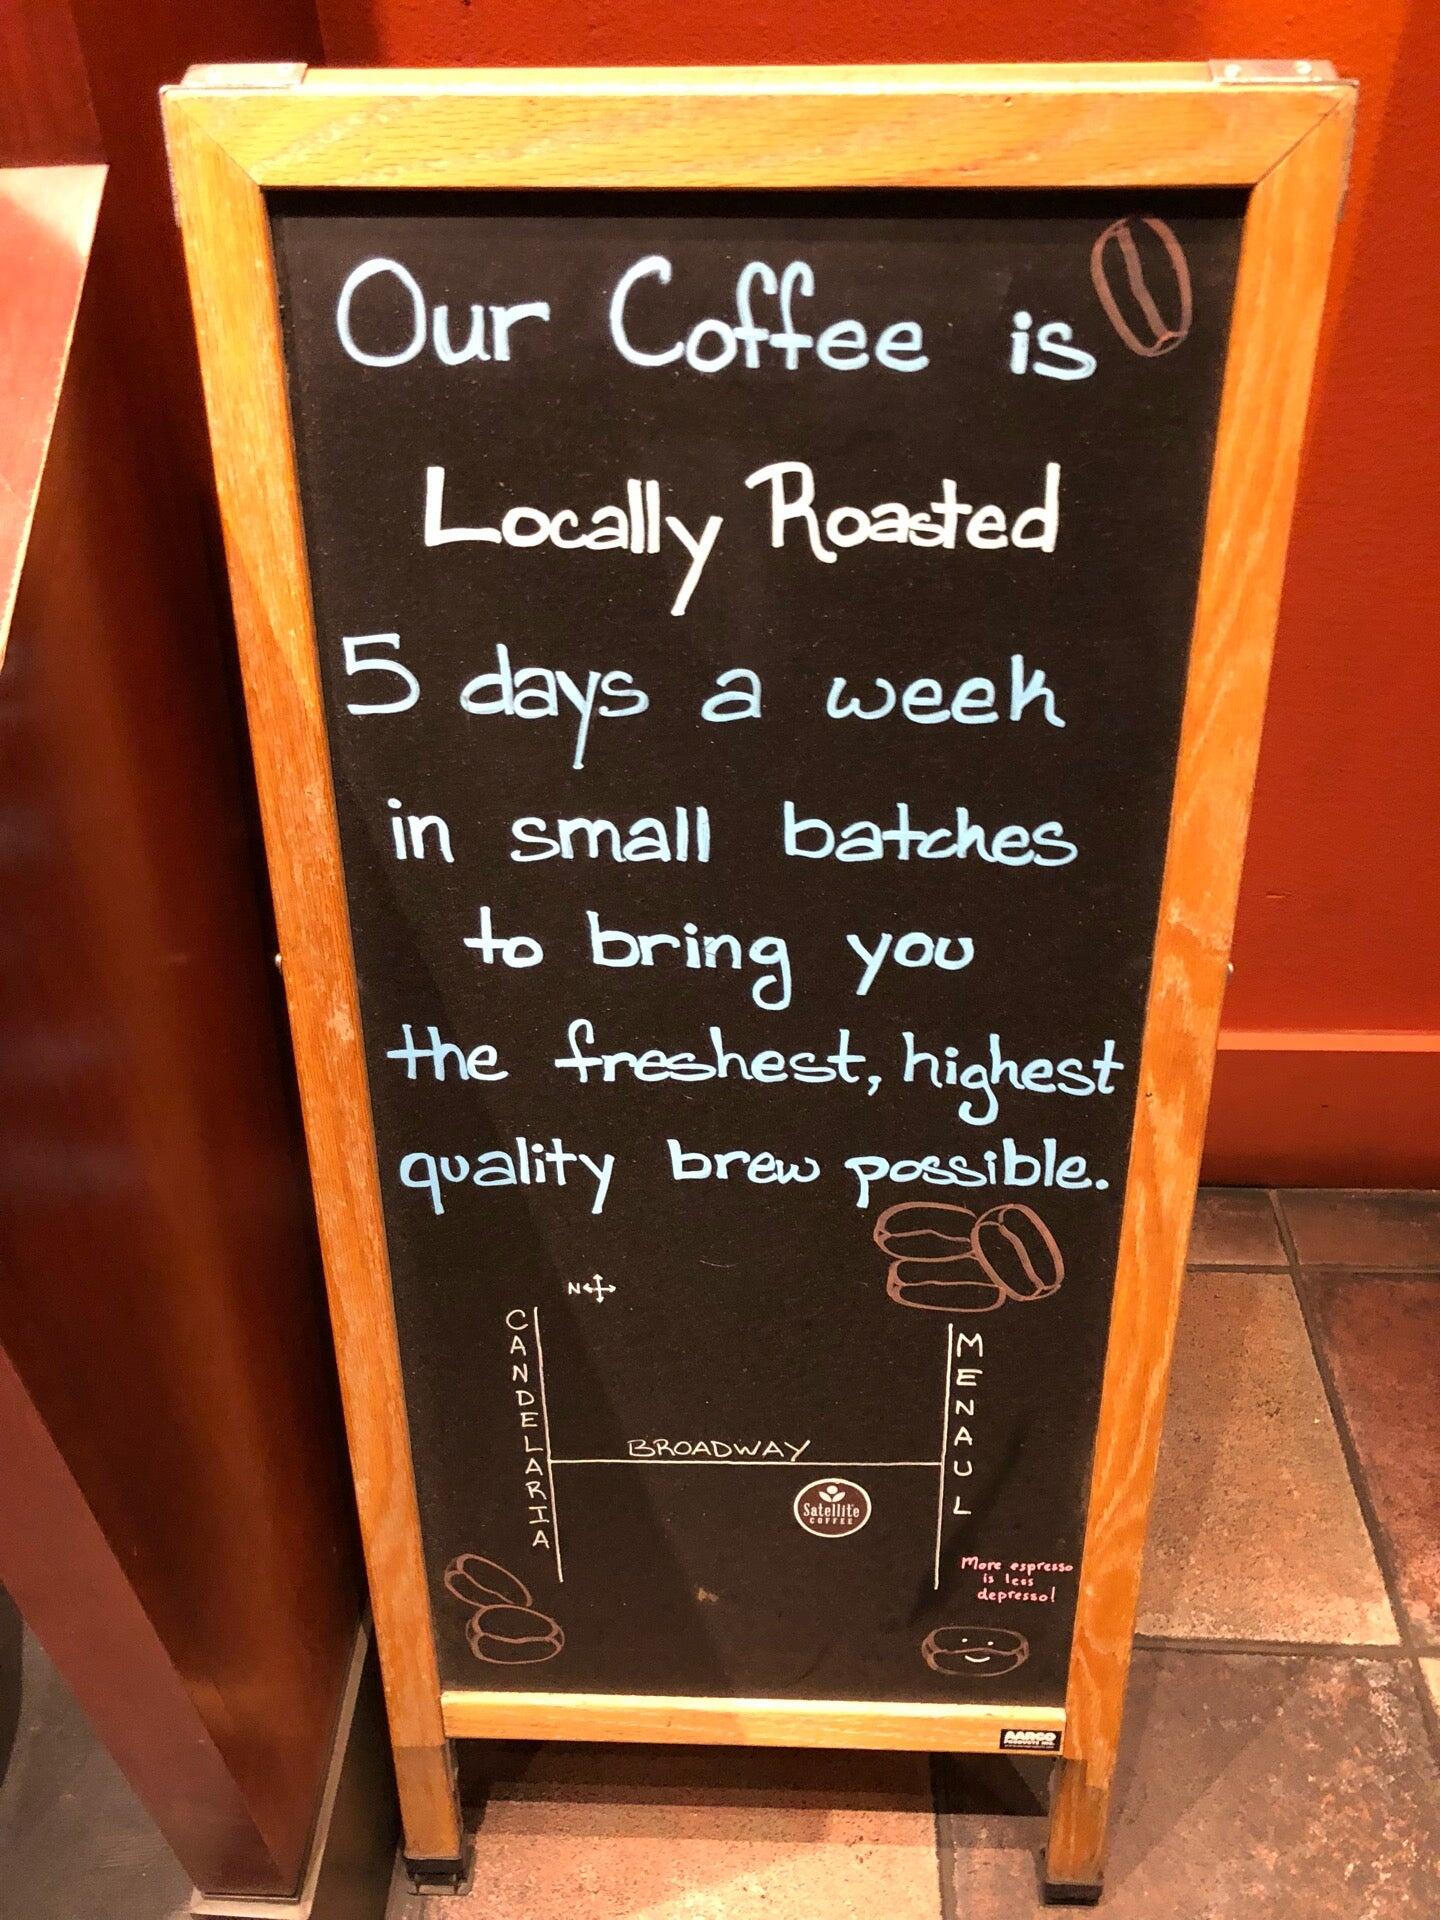 Our Coffee is
Locally Roasted
5 days a week
in small batches
to bring you
the freshest, highest
quality brew possible.
N
CANDELARIA
MENAUL
BROADWAY
Satellite
COFFEE
More espresso
is less
depresso!
AARCO